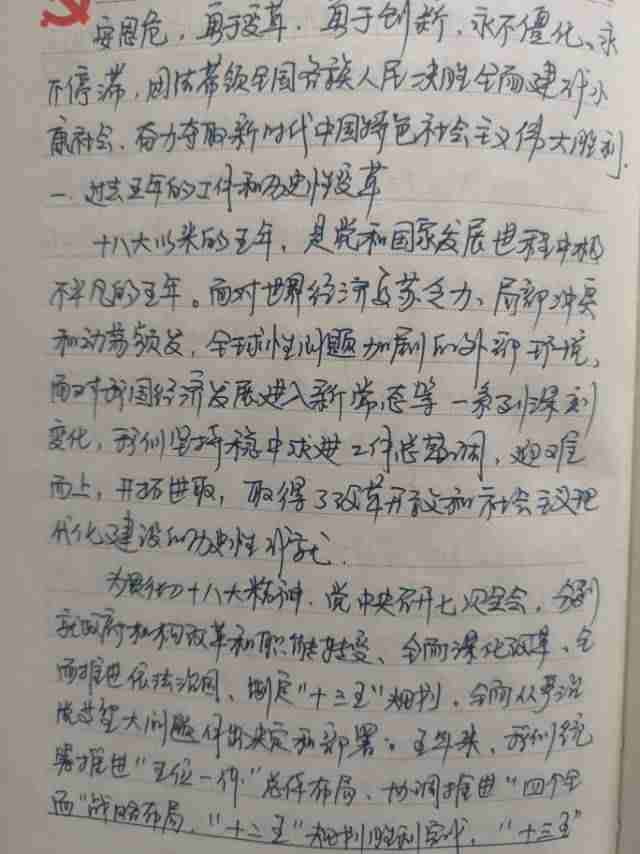 安思危，勇于变革，勇于创新，永不僵化、永
不停滞，团结带领全国各族人民决胜全面建成小
康社会，奋力夺取新时代中国特色社会主义伟大胜利.
一、过去五年的工作和历史性变革
十八大以来的五年，是党和国家发展进程中极
不平凡的五年。面对世界经济复苏乏力、局部冲突
和动荡频发，全球性问题加剧的外部环境，
面对我国经济发展进入新常态等一系列深刻
变化，我们坚持稳中求进工作总基调，迎难
而上，开拓进取，取得了改革开放和社会主义现
代化建设的历史性成就.
为贯彻十八大精神，党中央召开七次全会，分别
就政府机构改革和职能转变、全面深化改革、全
面推进依法治国、制定"十三五"规划，全面从严治
党等重大问题作出决定和部署。五年来，我们统
筹推进"五位一体"总体布局、协调推进"四个全
面"战略布局，"十二五"规划胜利完成，"十三五"